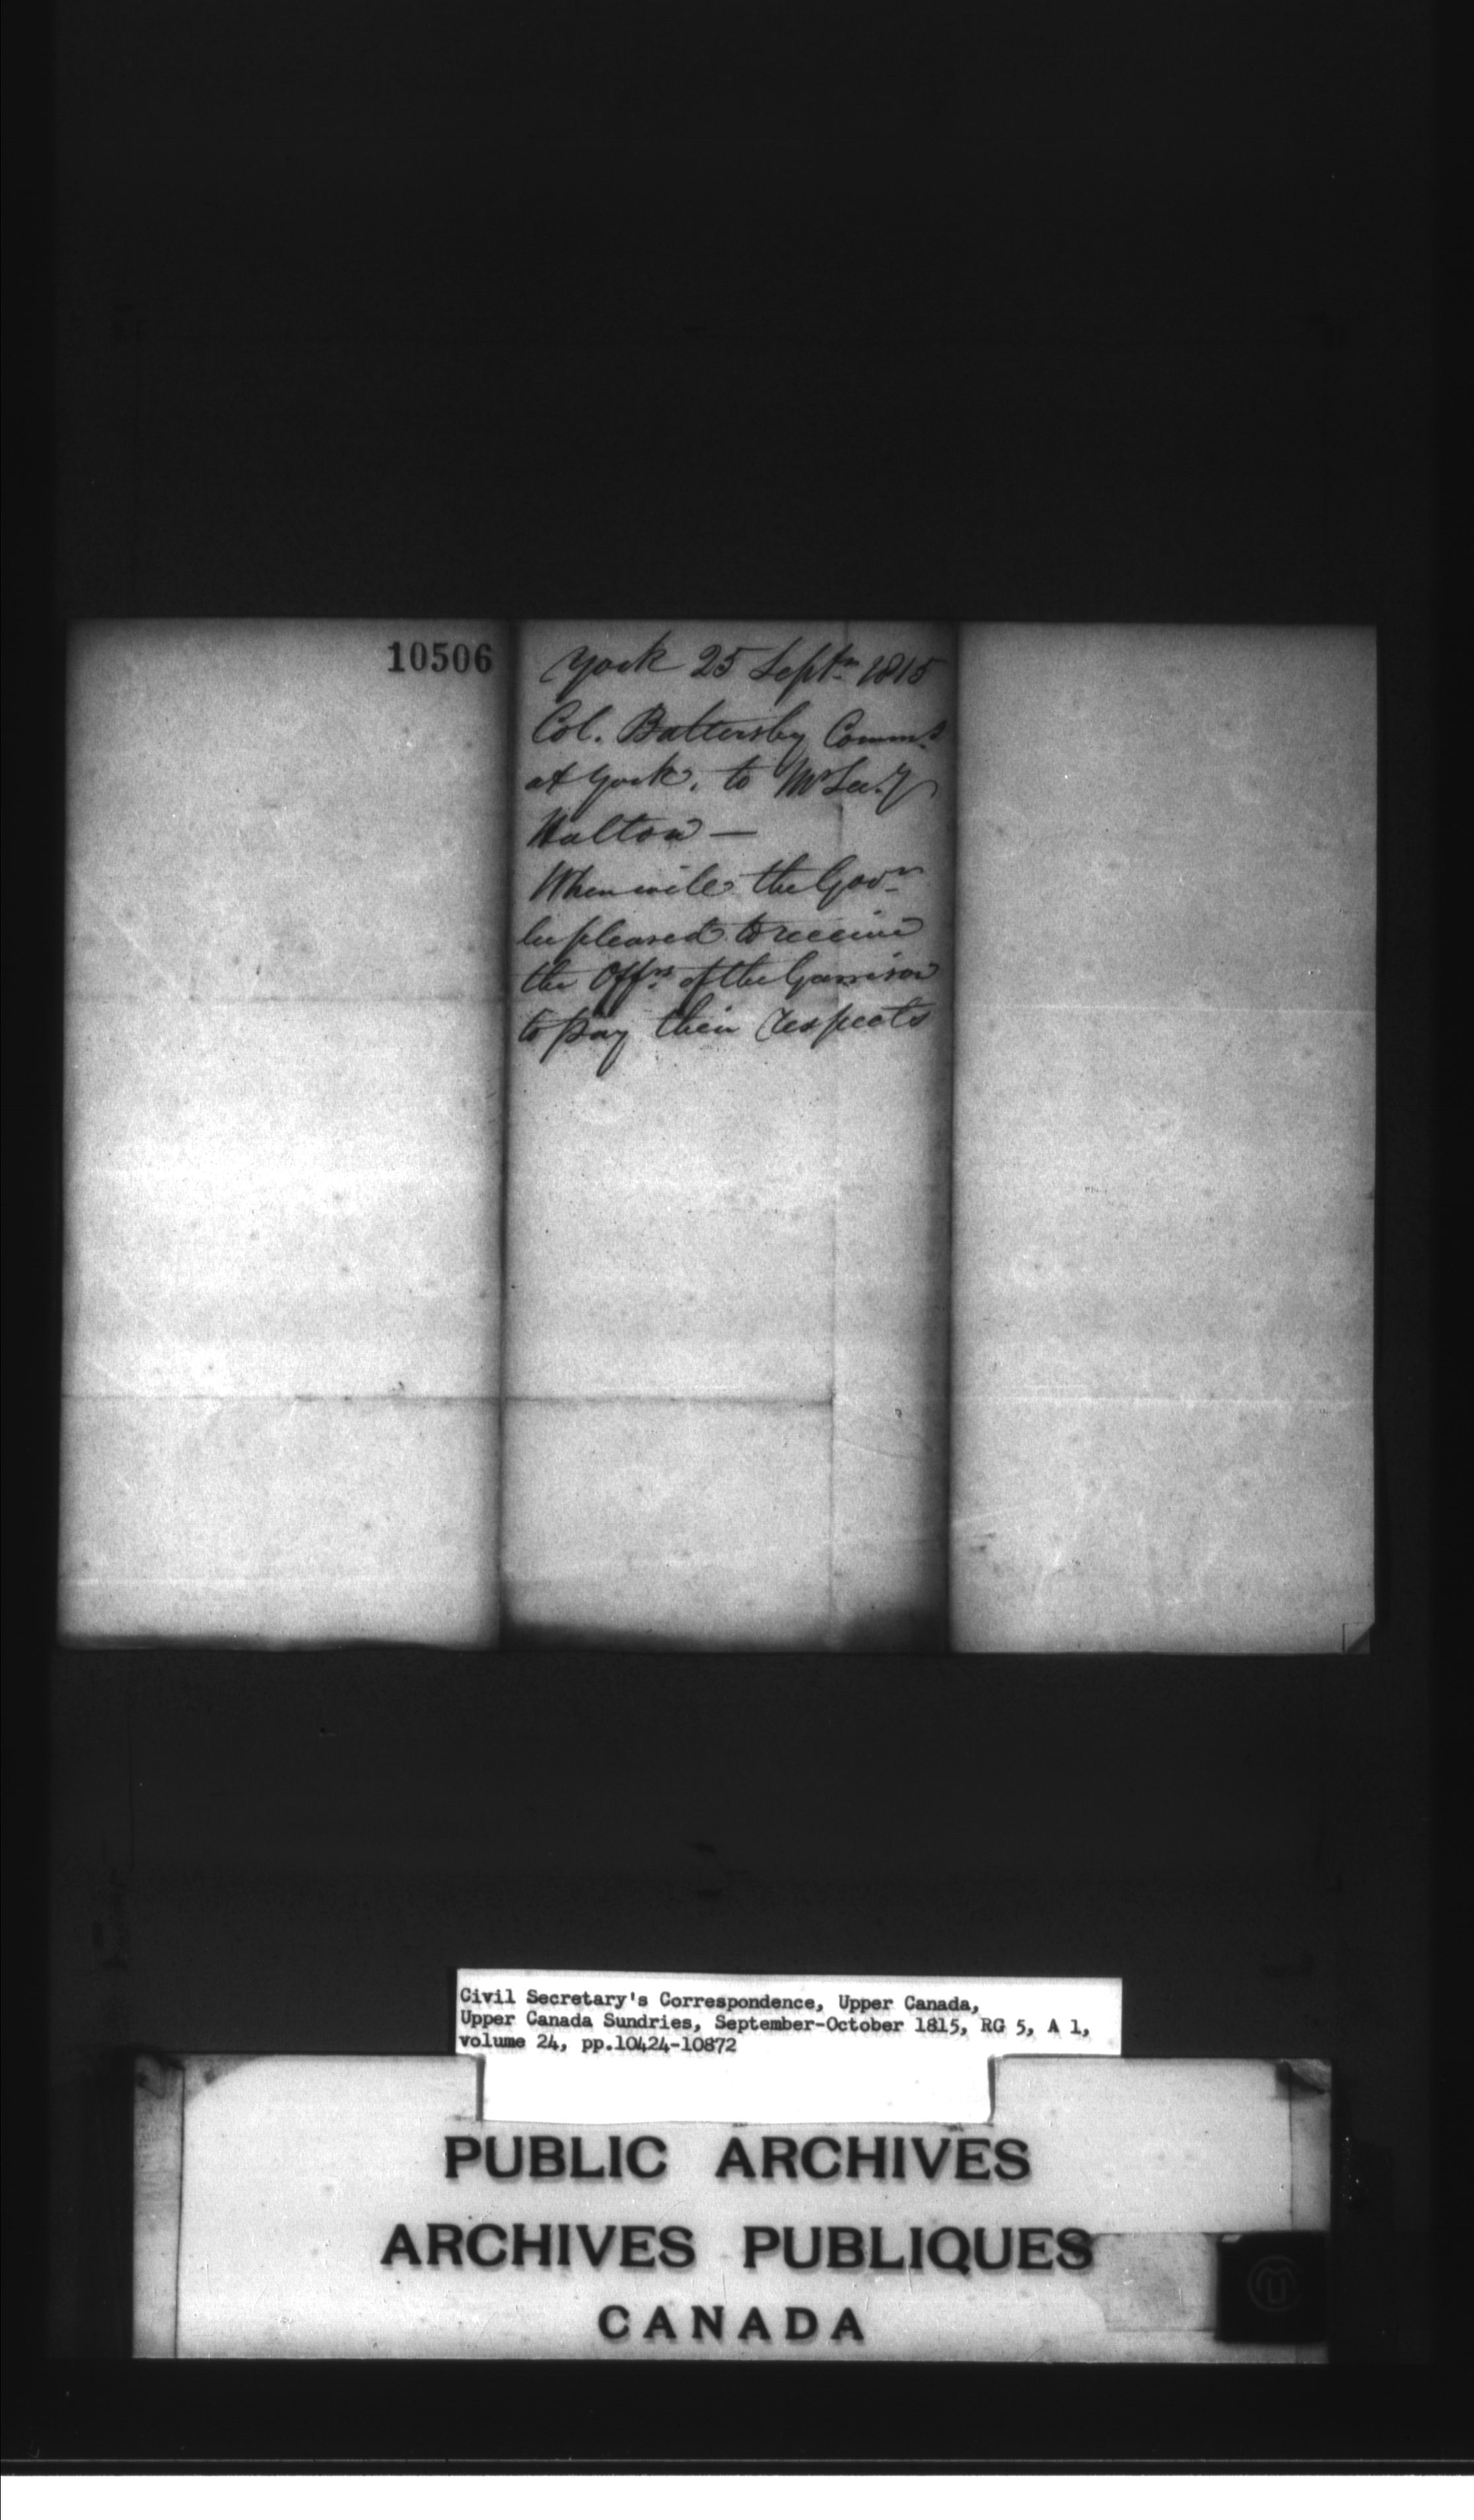 10506
York 25 Septr. 1815
Col. Battersby Commt.
at York. to Mr Secy
Halton —
When will the Govr.
be pleased to receive
the Offrs. of the Garrison
to pay their respects
Civil Secretary's Correspondence, Upper Canada,
Upper Canada Sundries, September-October 1815, RG 5, A 1,
volume 24, pp.10424-10872
PUBLIC ARCHIVES
ARCHIVES PUBLIQUES
CANADA